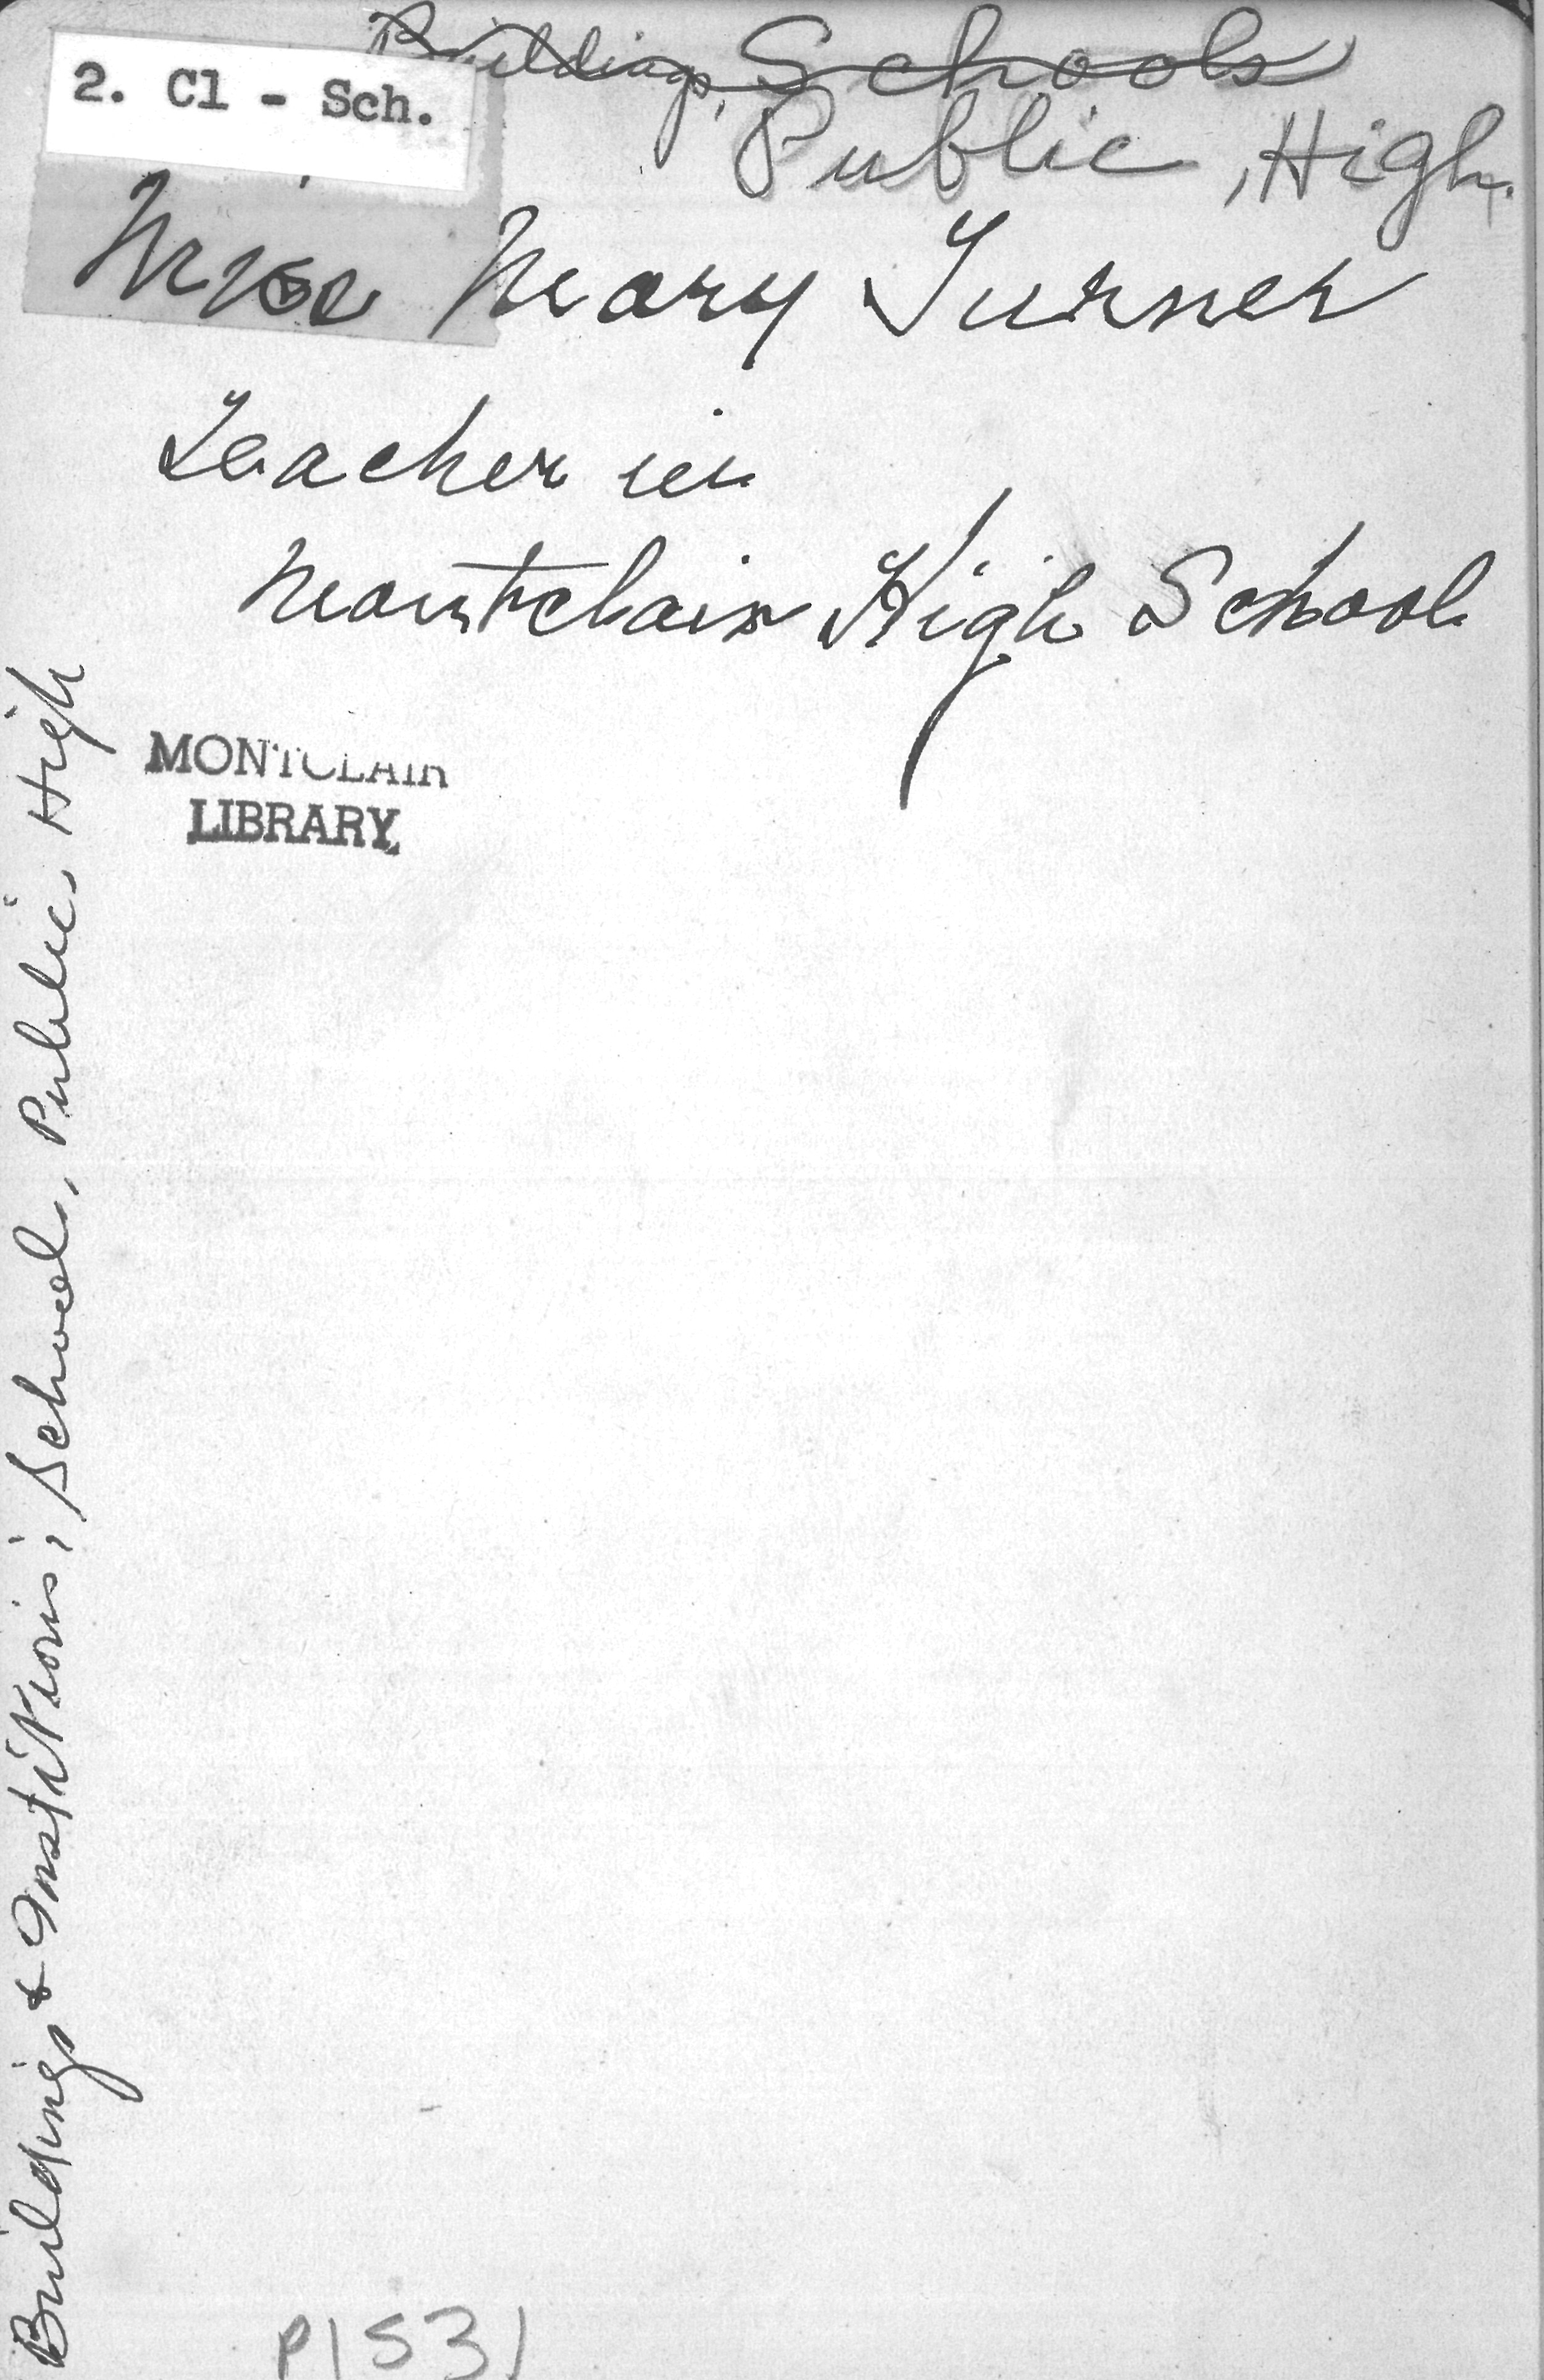 Buildings, Schools
2. Cl - Sch.
Public, High.
Miss Mary Turner
Teacher in
Montclair High School
MONTCLAIR
LIBRARY
Buildings & Institutions; School, Public, High
P1531